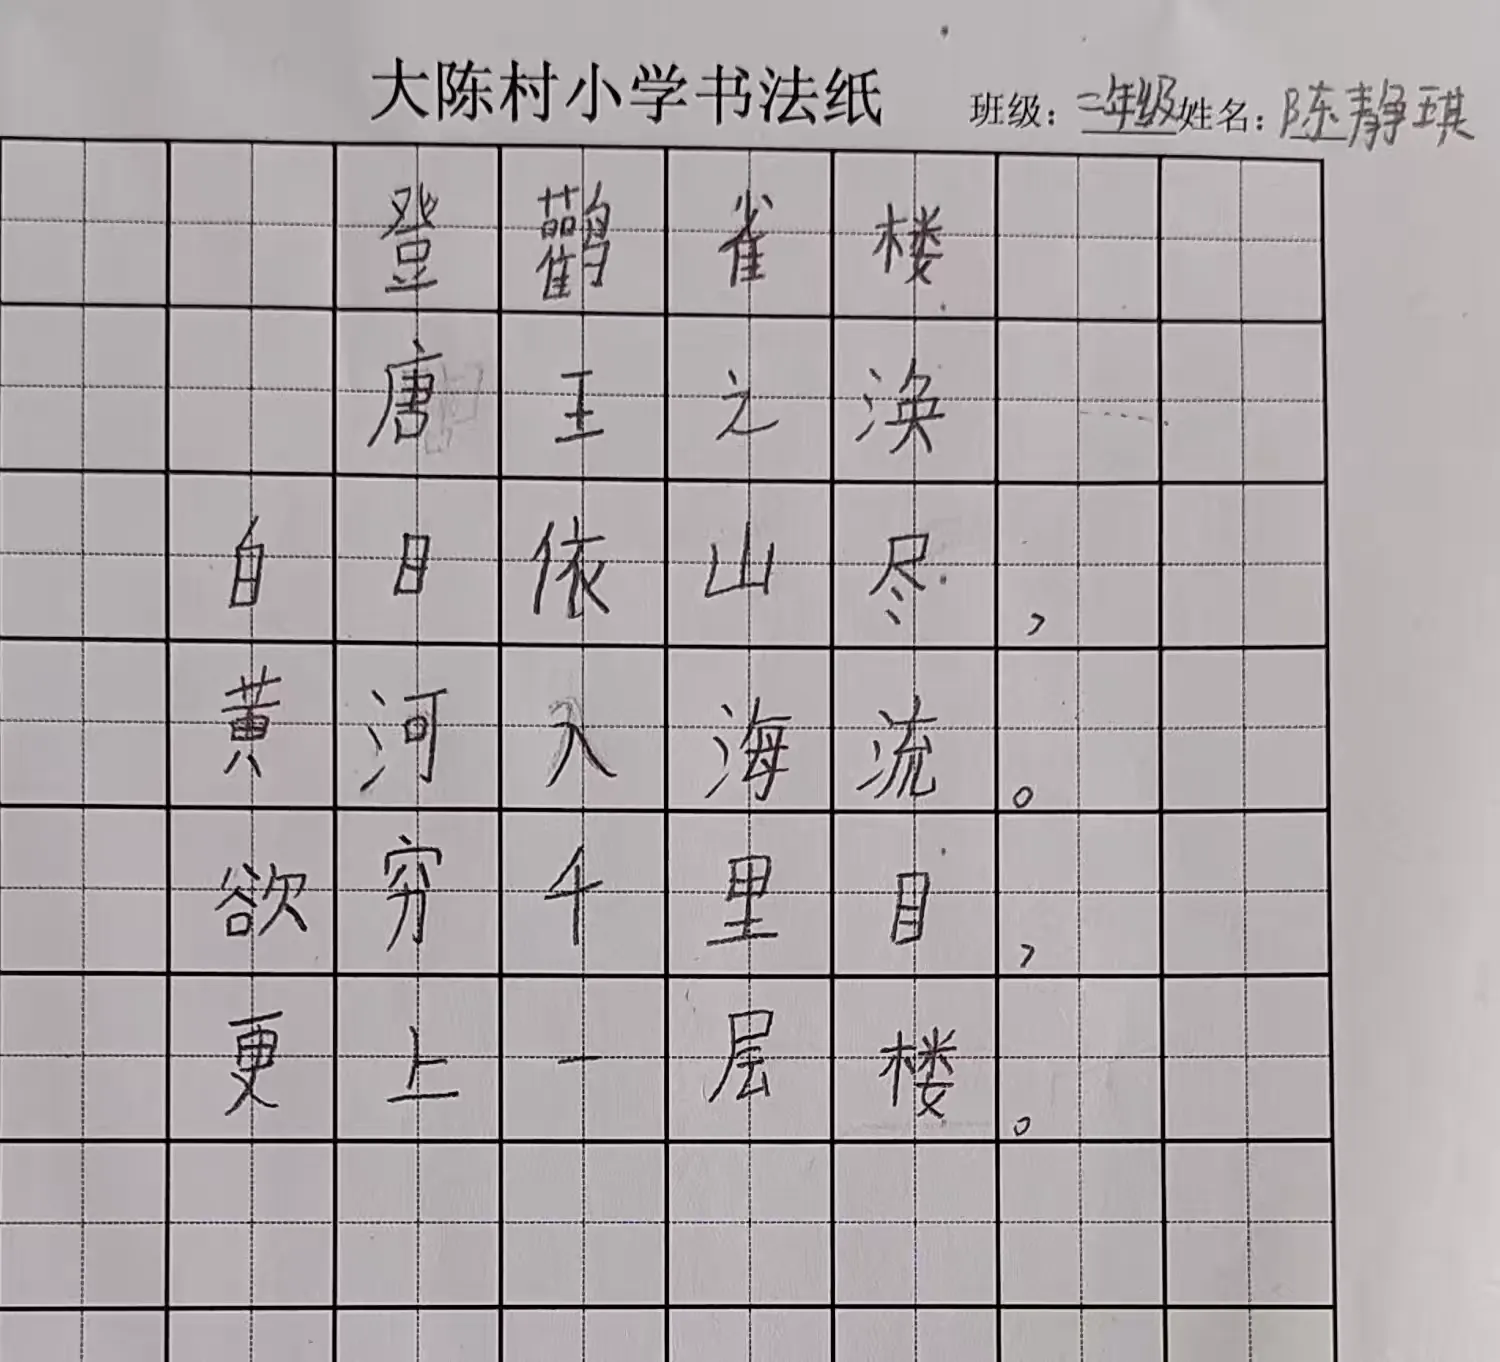 大陈村小学书法纸 班级：二年级 姓名：陈静琪
登鹳雀楼
唐王之涣
白日依山尽，
黄河入海流。
欲穷千里目，
更上一层楼。